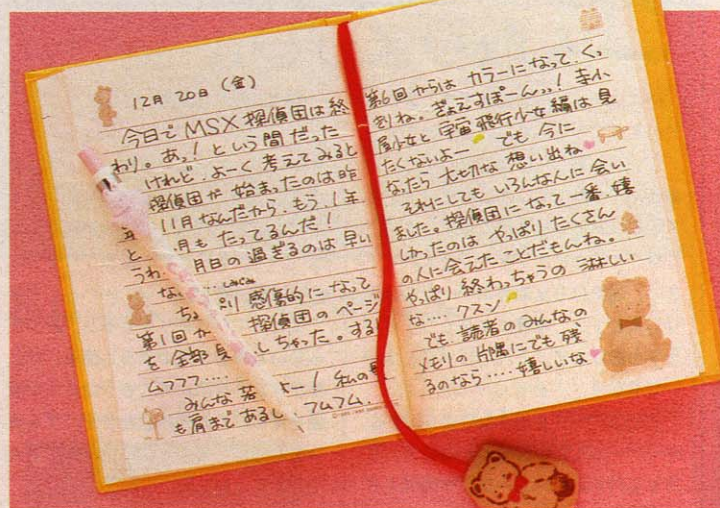 12月 20日 (金)
今日で MSX 探偵団は終
わり。あっ！という間だった
けれど、よーく考えてみると
探偵団が 始まったのは昨
年 11月なんだから、もう、1年
と 月も たってるんだ！
うわ 月日の過ぎるのは早い
な ...... しみじみ
ち ぴり 感傷的になって
第1回か 探偵団のページ
を 全部 見 しちゃった。する
ムフフフ....
みんな 若 よー！ 私の
も肩まであるし、フムフム.
第6回からは カラーになって、くっ
きりね。ぎょえすぽーんっ！ 幸小
魔少女と宇宙飛行少女編は見
たくないよー でも 今に
なったら 大切な 想い出ね
それにしても いろんな人に 会い
ました。探偵団になって一番 嬉
しかったのは やっぱり たくさん
の人に会えたことだもんね。
やっぱり 終わっちゃうの 淋しい
な.... クスン
でも、読者の みんなの
メモリの 片隅にでも 残
るのなら .... 嬉しいな